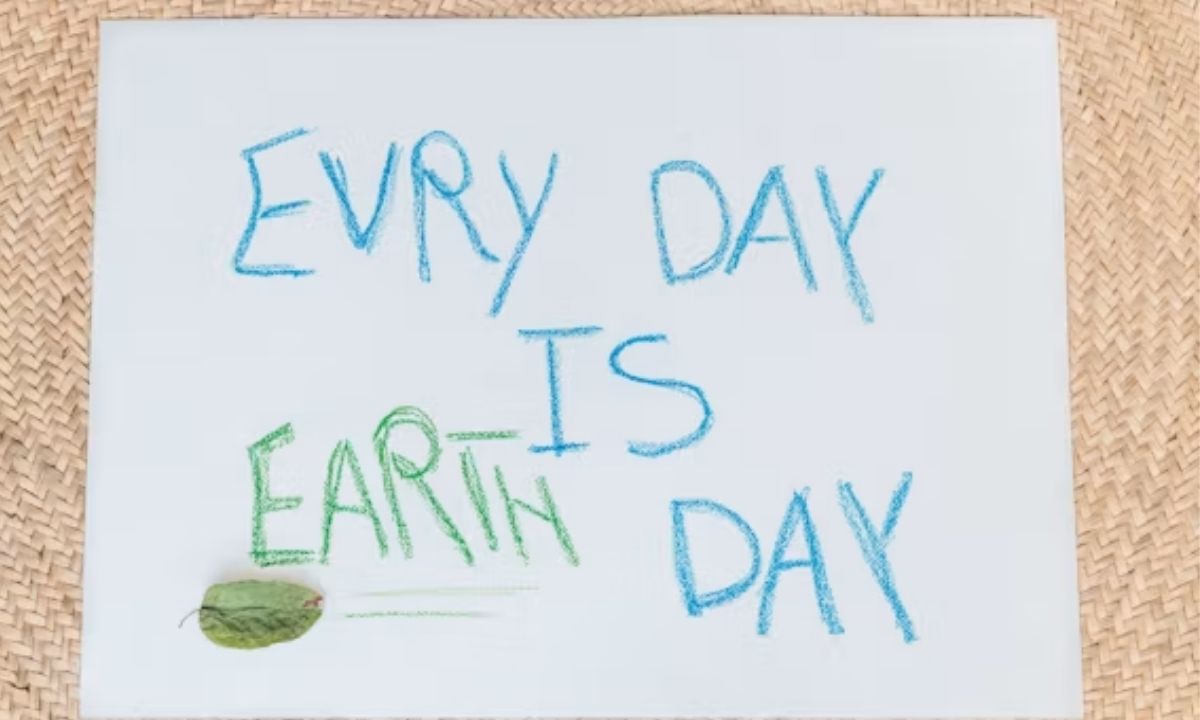 EVRY DAY
IS
EARTH DAY